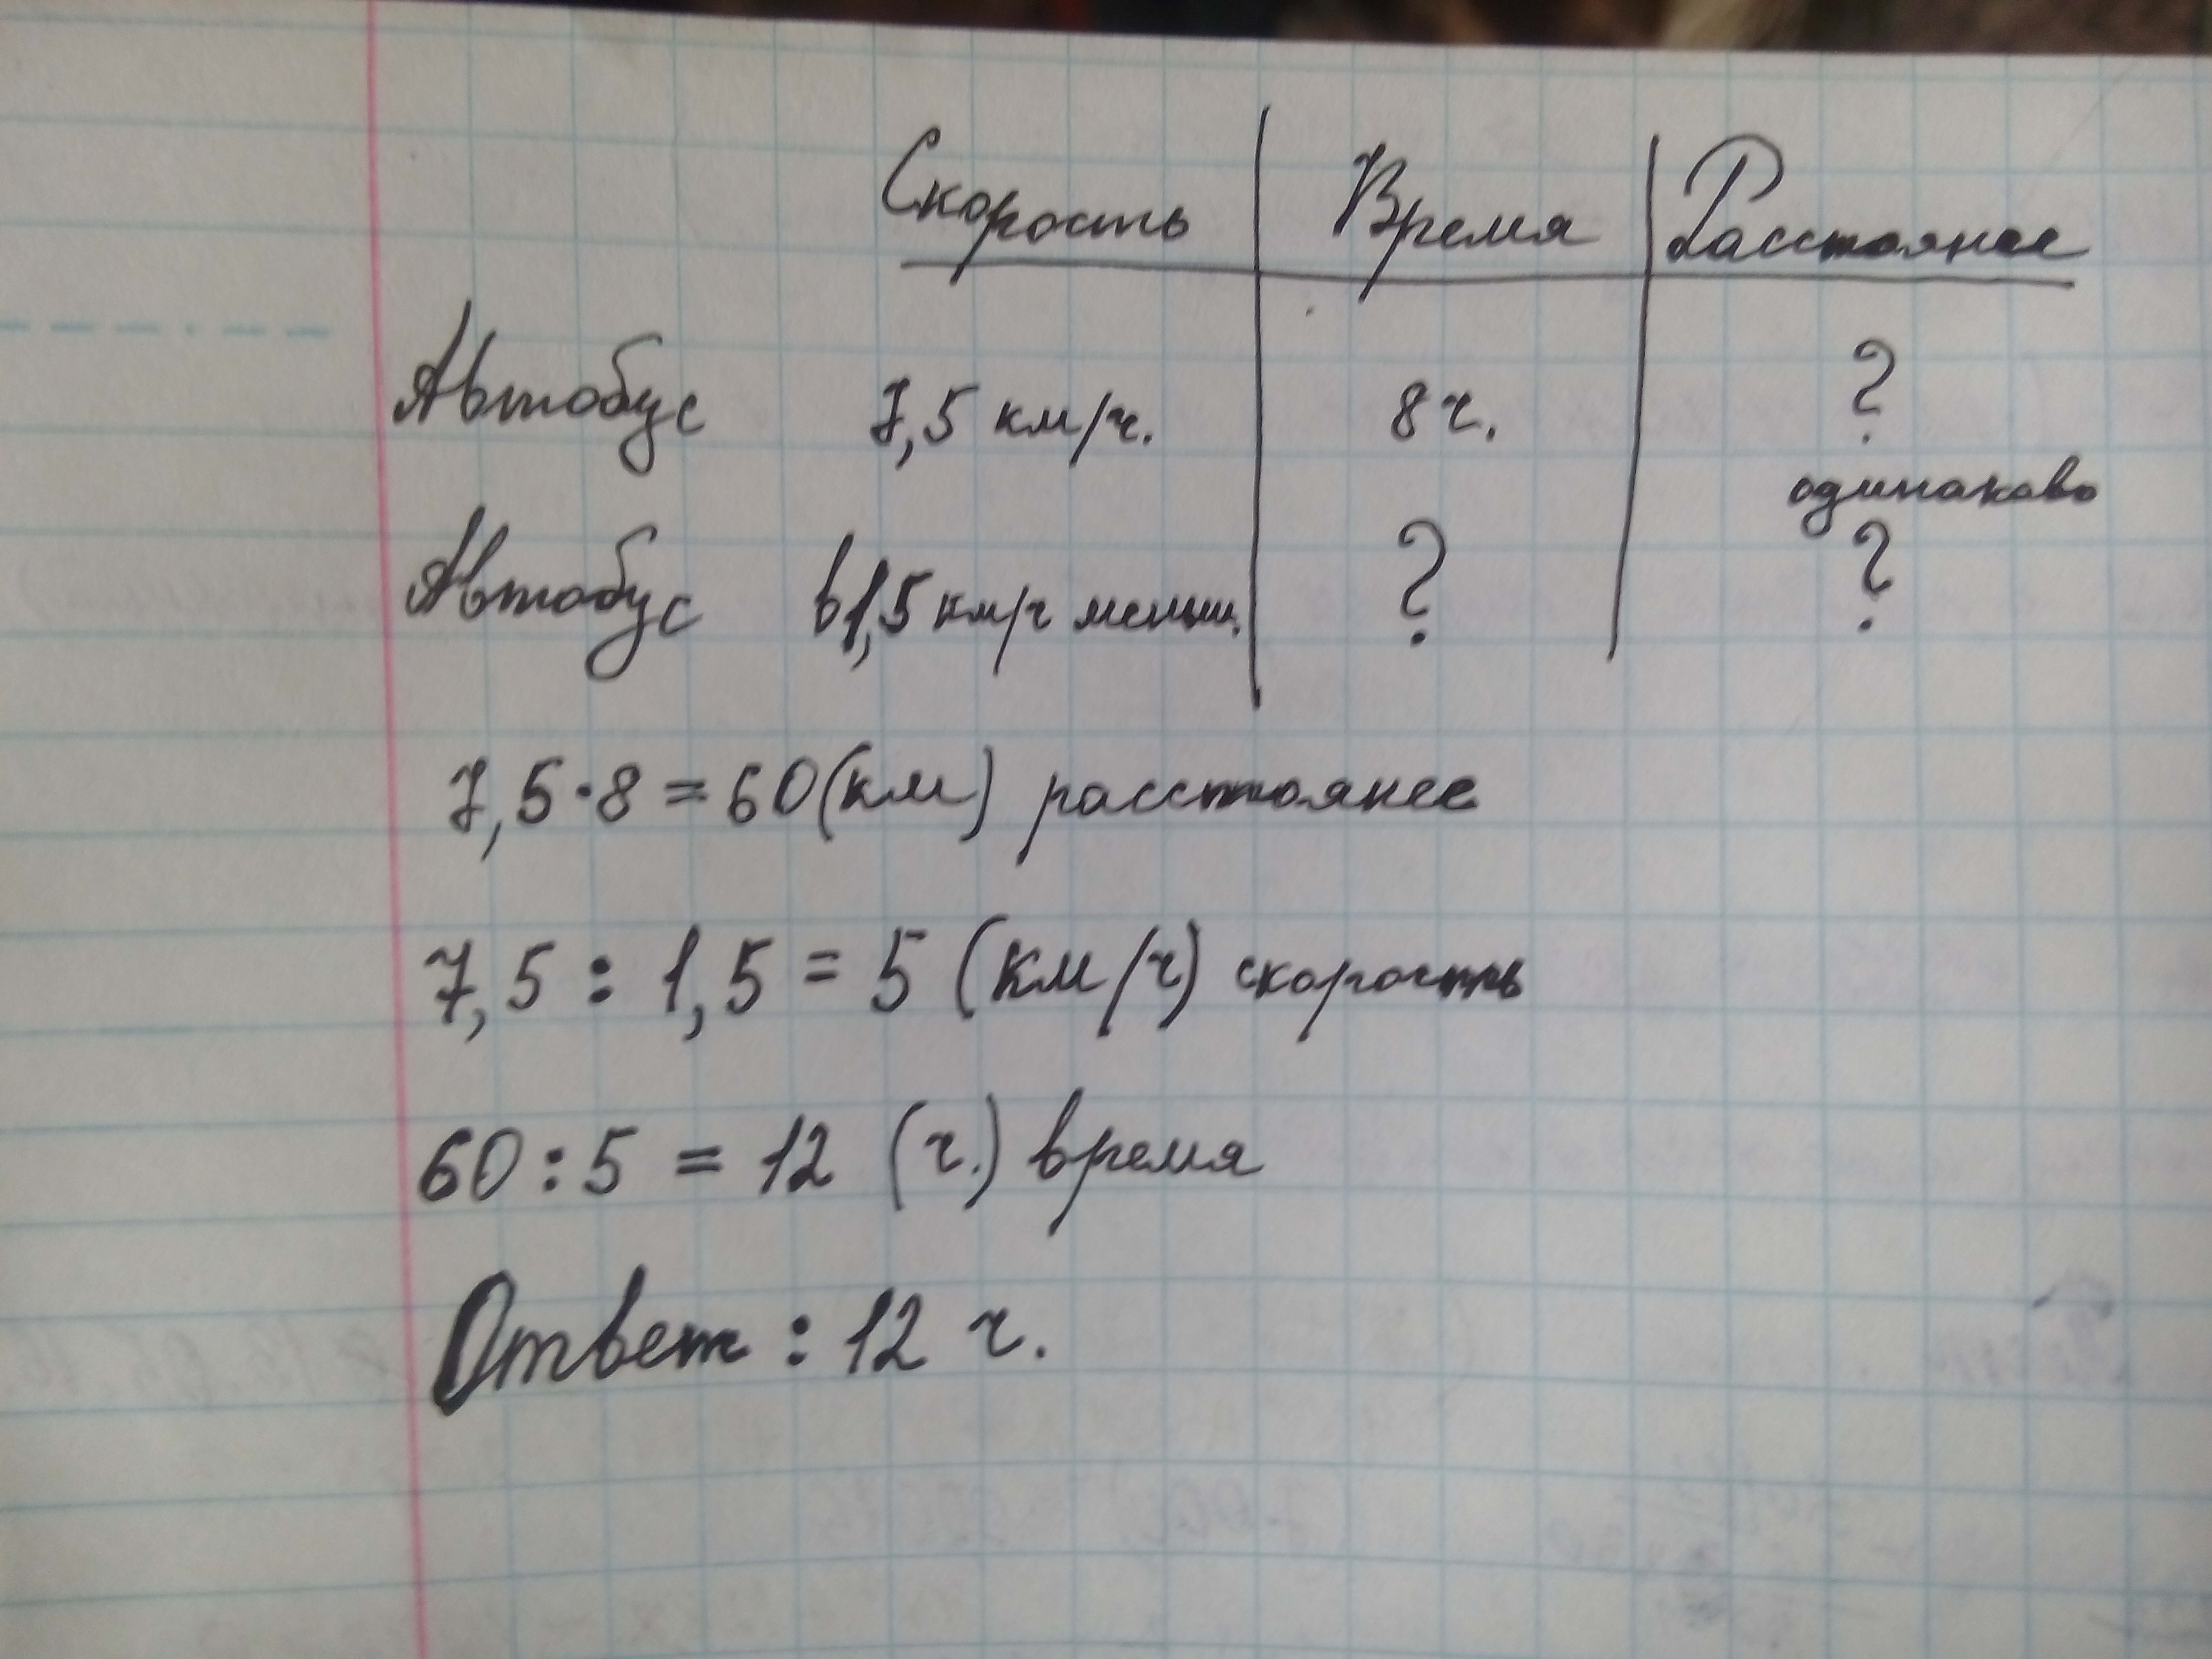 Скорость Время Расстоянее
Автобус 7,5 км/ч. 8 ч. ?
одинаково
Автобус в1,5 км/ч менш. ? ?
7,5·8=60(км) расстоянее
7,5 : 1,5 = 5 (км/ч) скорость
60:5 = 12 (ч.) время
Ответ : 12 ч.